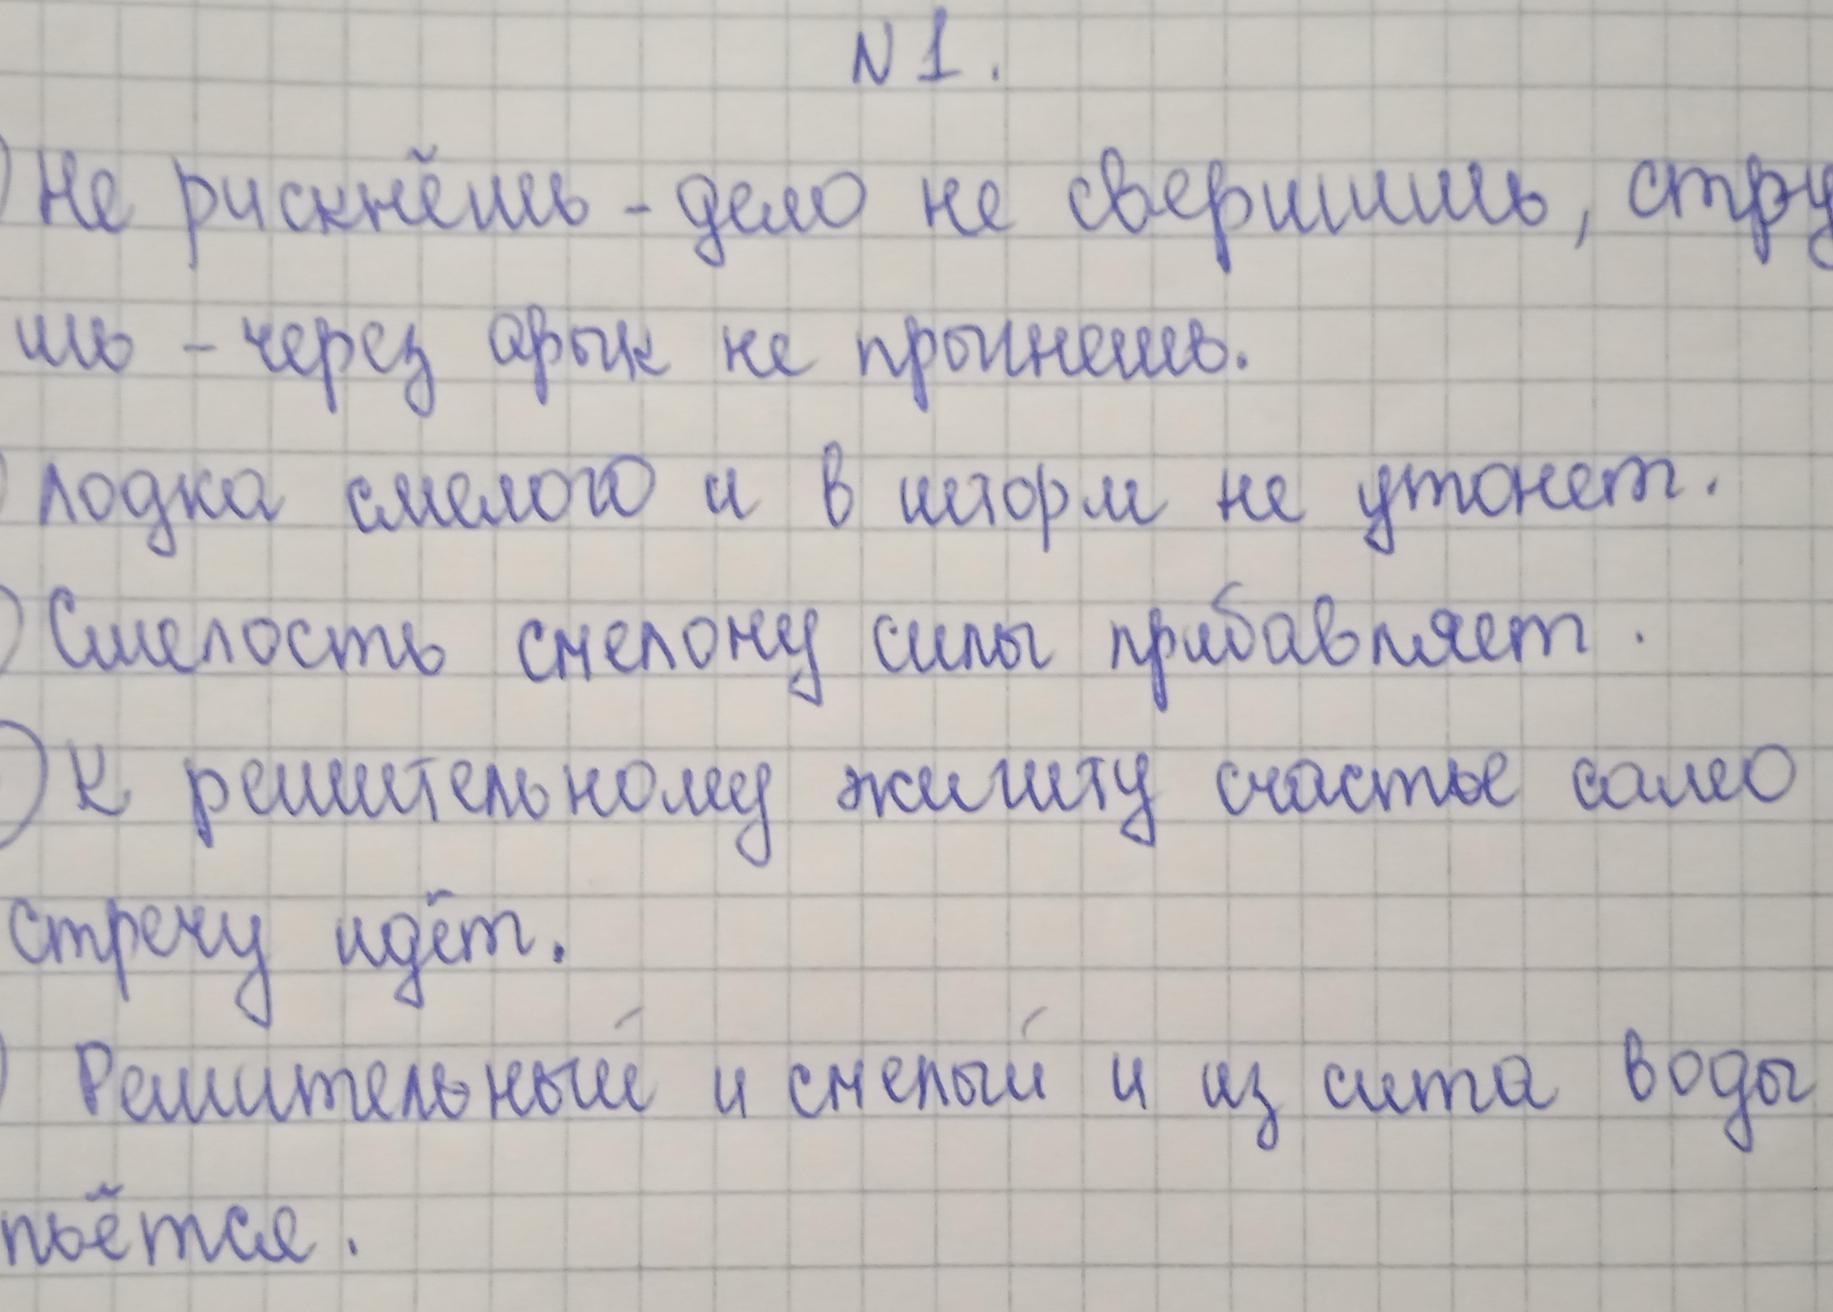 N 1.
) Не рискнёшь - дело не свершишь, стру
шь - через арык не прыгнешь.
) лодка смелого и в шторм не утонет.
) Смелость смелому силы прибавляет.
) К решительному жигиту счастье само
стречу идёт.
) Решительный и смелый и из сита воды
пьётся.